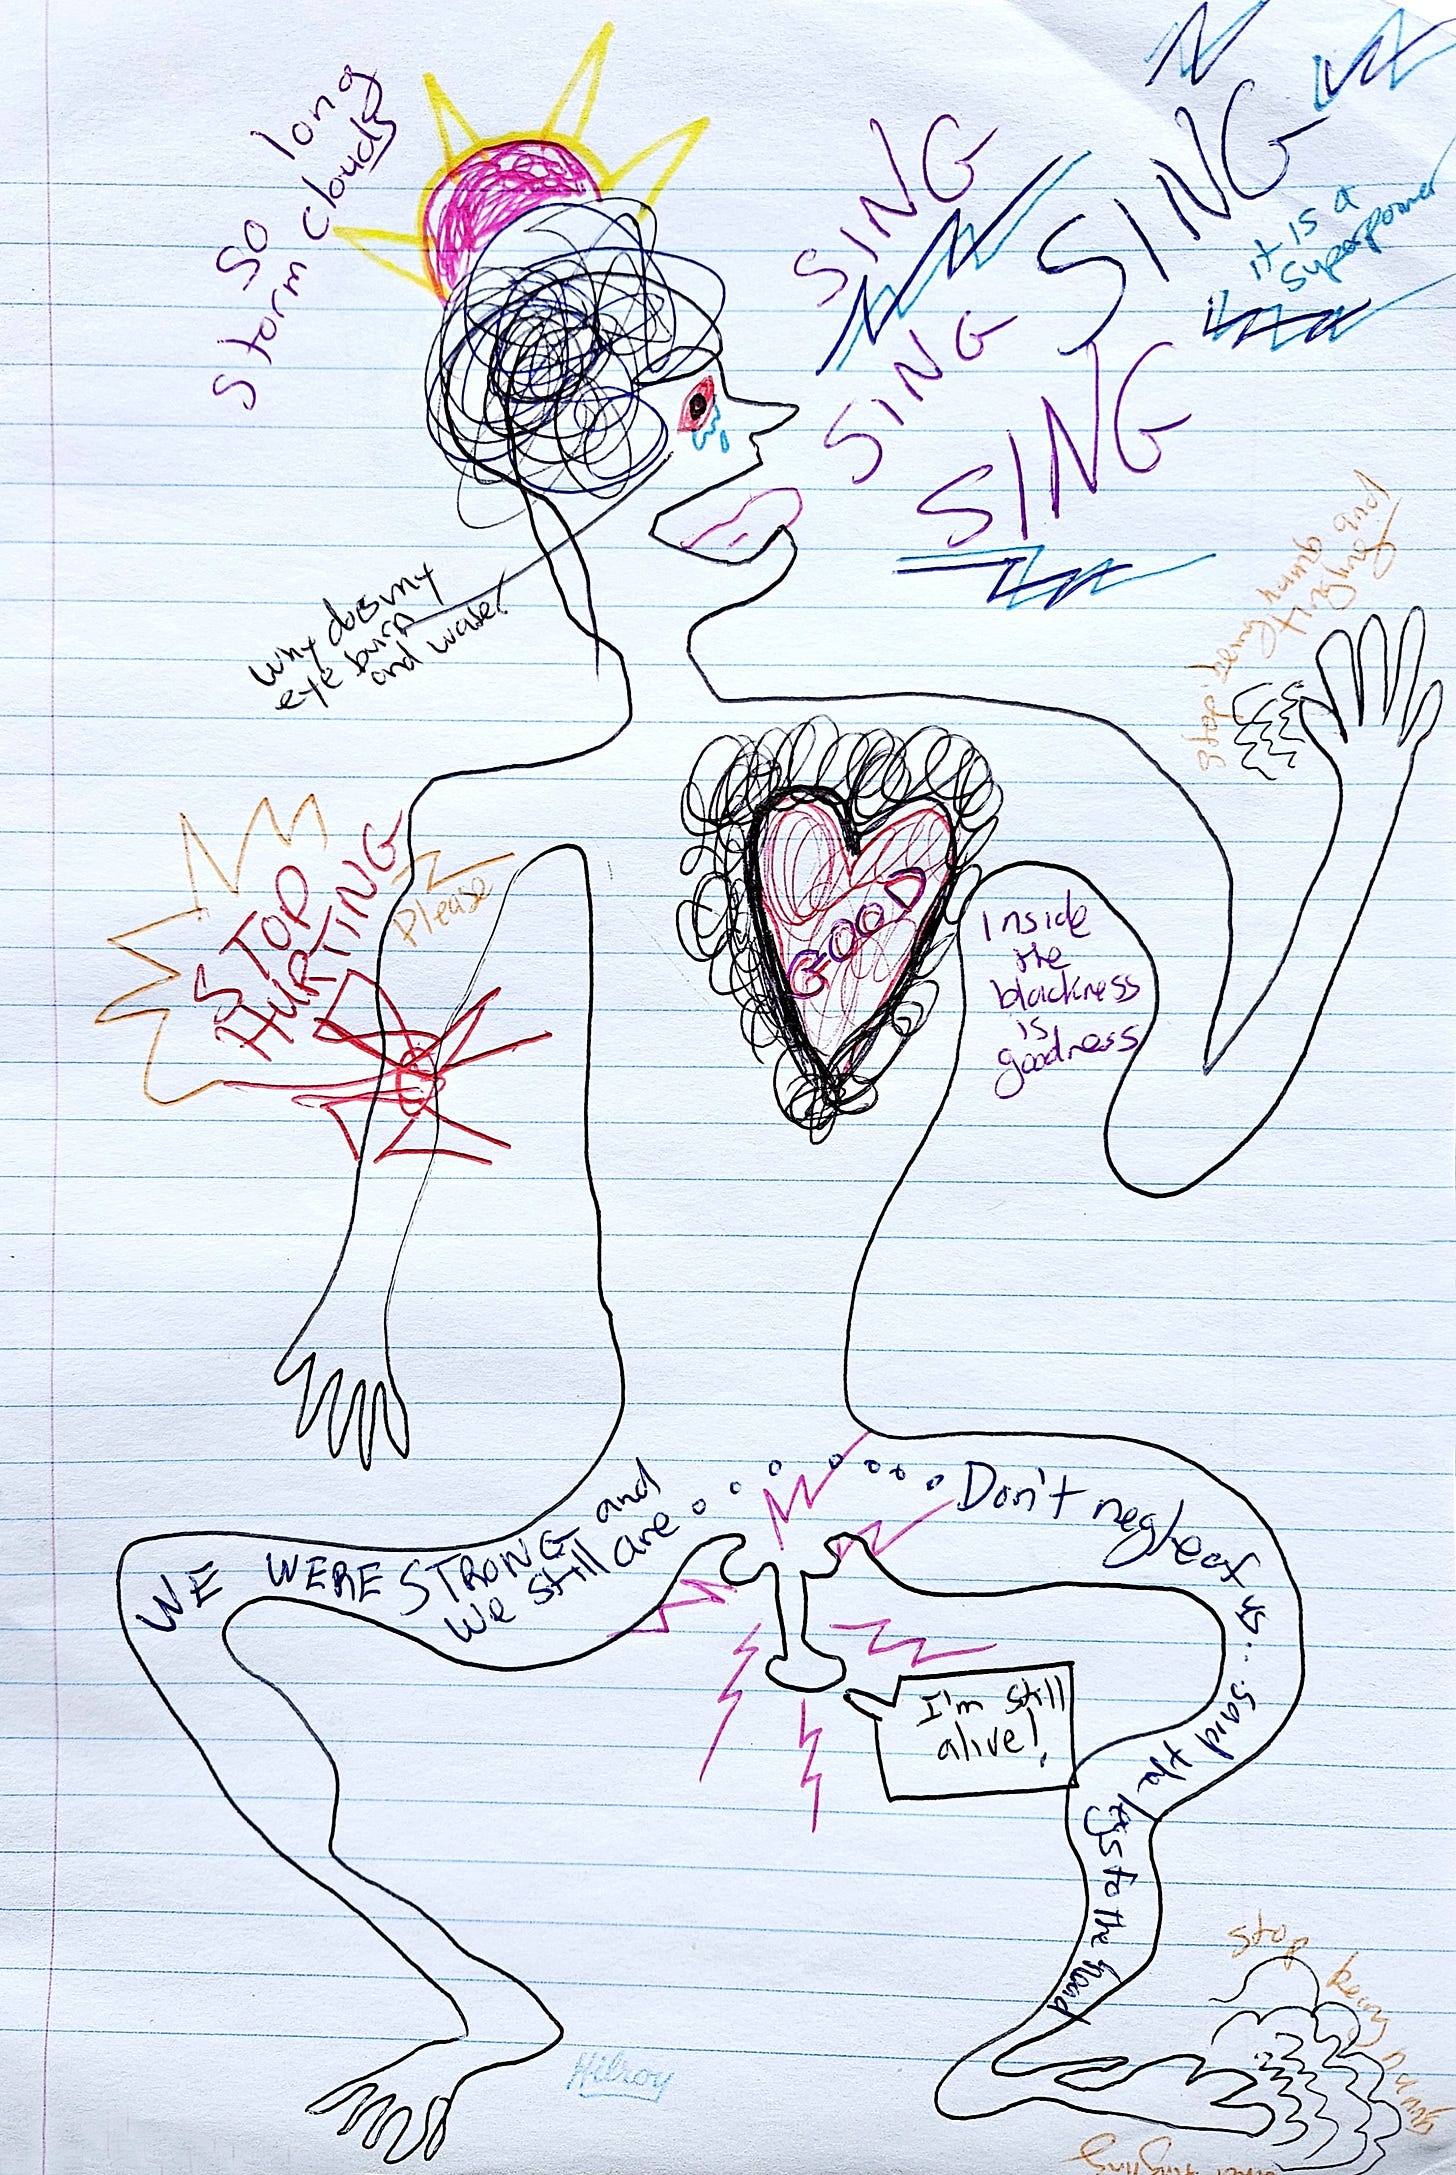 So long
storm clouds
SING
SING
it is a
superpower
SING
SING
why does my
eye burn
and water
stop being numb and
tingling
STOP
HURTING
Please
GOOD
Inside
the
blackness
is
goodness
WE WERE STRONG and
we still are
Don't neglect us... said the legs to the head
I'm still
alive!
stop being numb
Hilroy